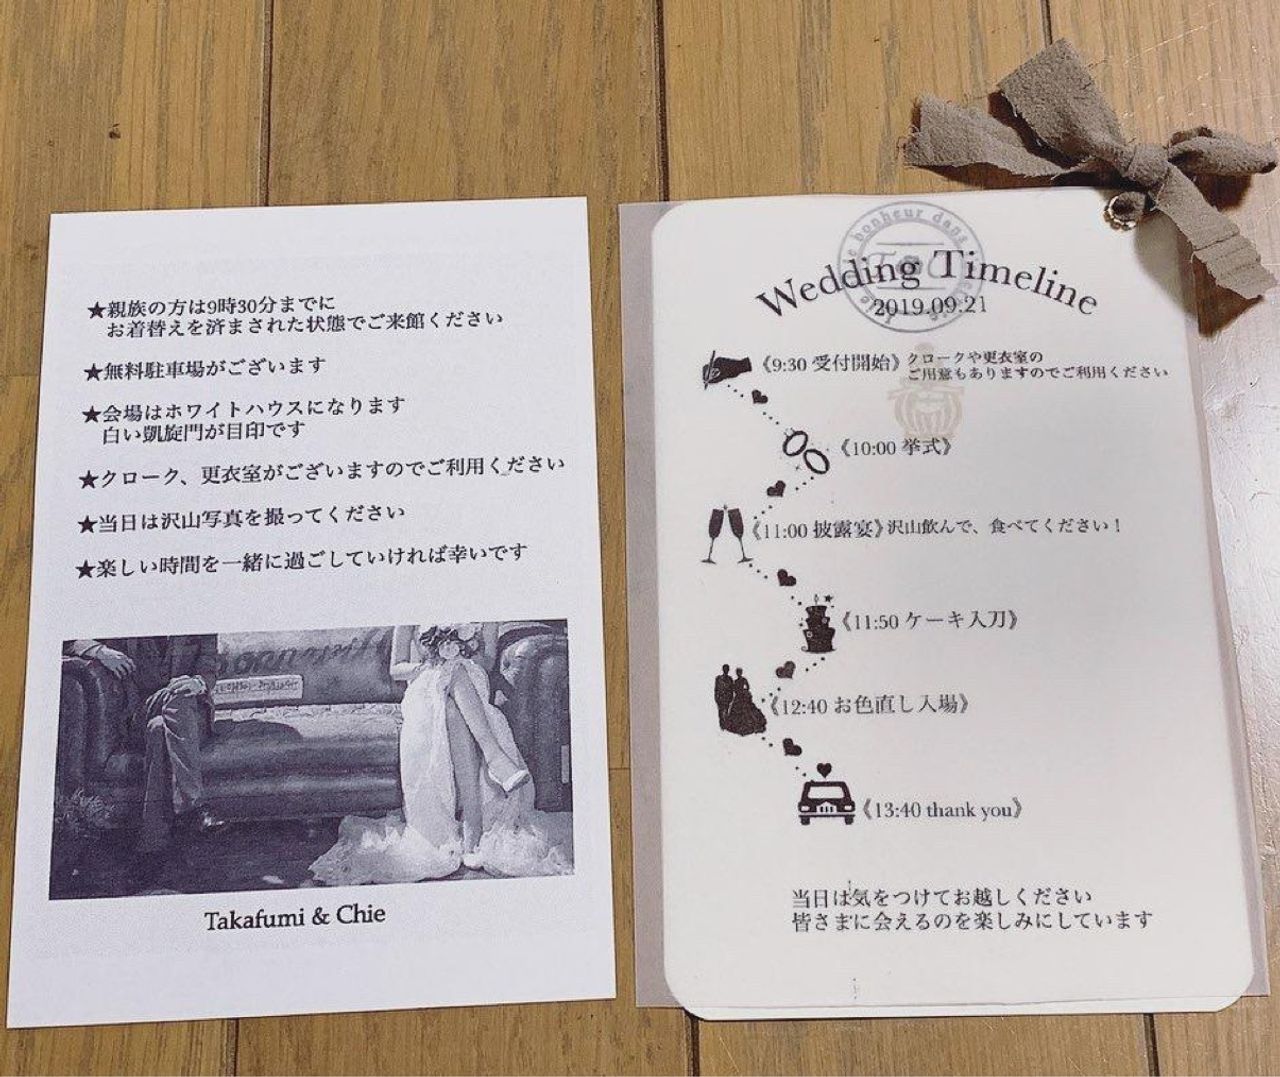 ★親族の方は9時30分までに
お着替えを済まされた状態でご来館ください
★無料駐車場がございます
★会場はホワイトハウスになります
白い凱旋門が目印です
★クローク、更衣室がございますのでご利用ください
★当日は沢山写真を撮ってください
★楽しい時間を一緒に過ごしていければ幸いです
Takafumi & Chie
bonheur dans
Wedding Timeline
2019.09.21
《9:30 受付開始》クロークや更衣室の
ご用意もありますのでご利用ください
《10:00 挙式》
《11:00 披露宴》沢山飲んで、食べてください！
《11:50 ケーキ入刀》
《12:40 お色直し入場》
《13:40 thank you》
当日は気をつけてお越しください
皆さまに会えるのを楽しみにしています